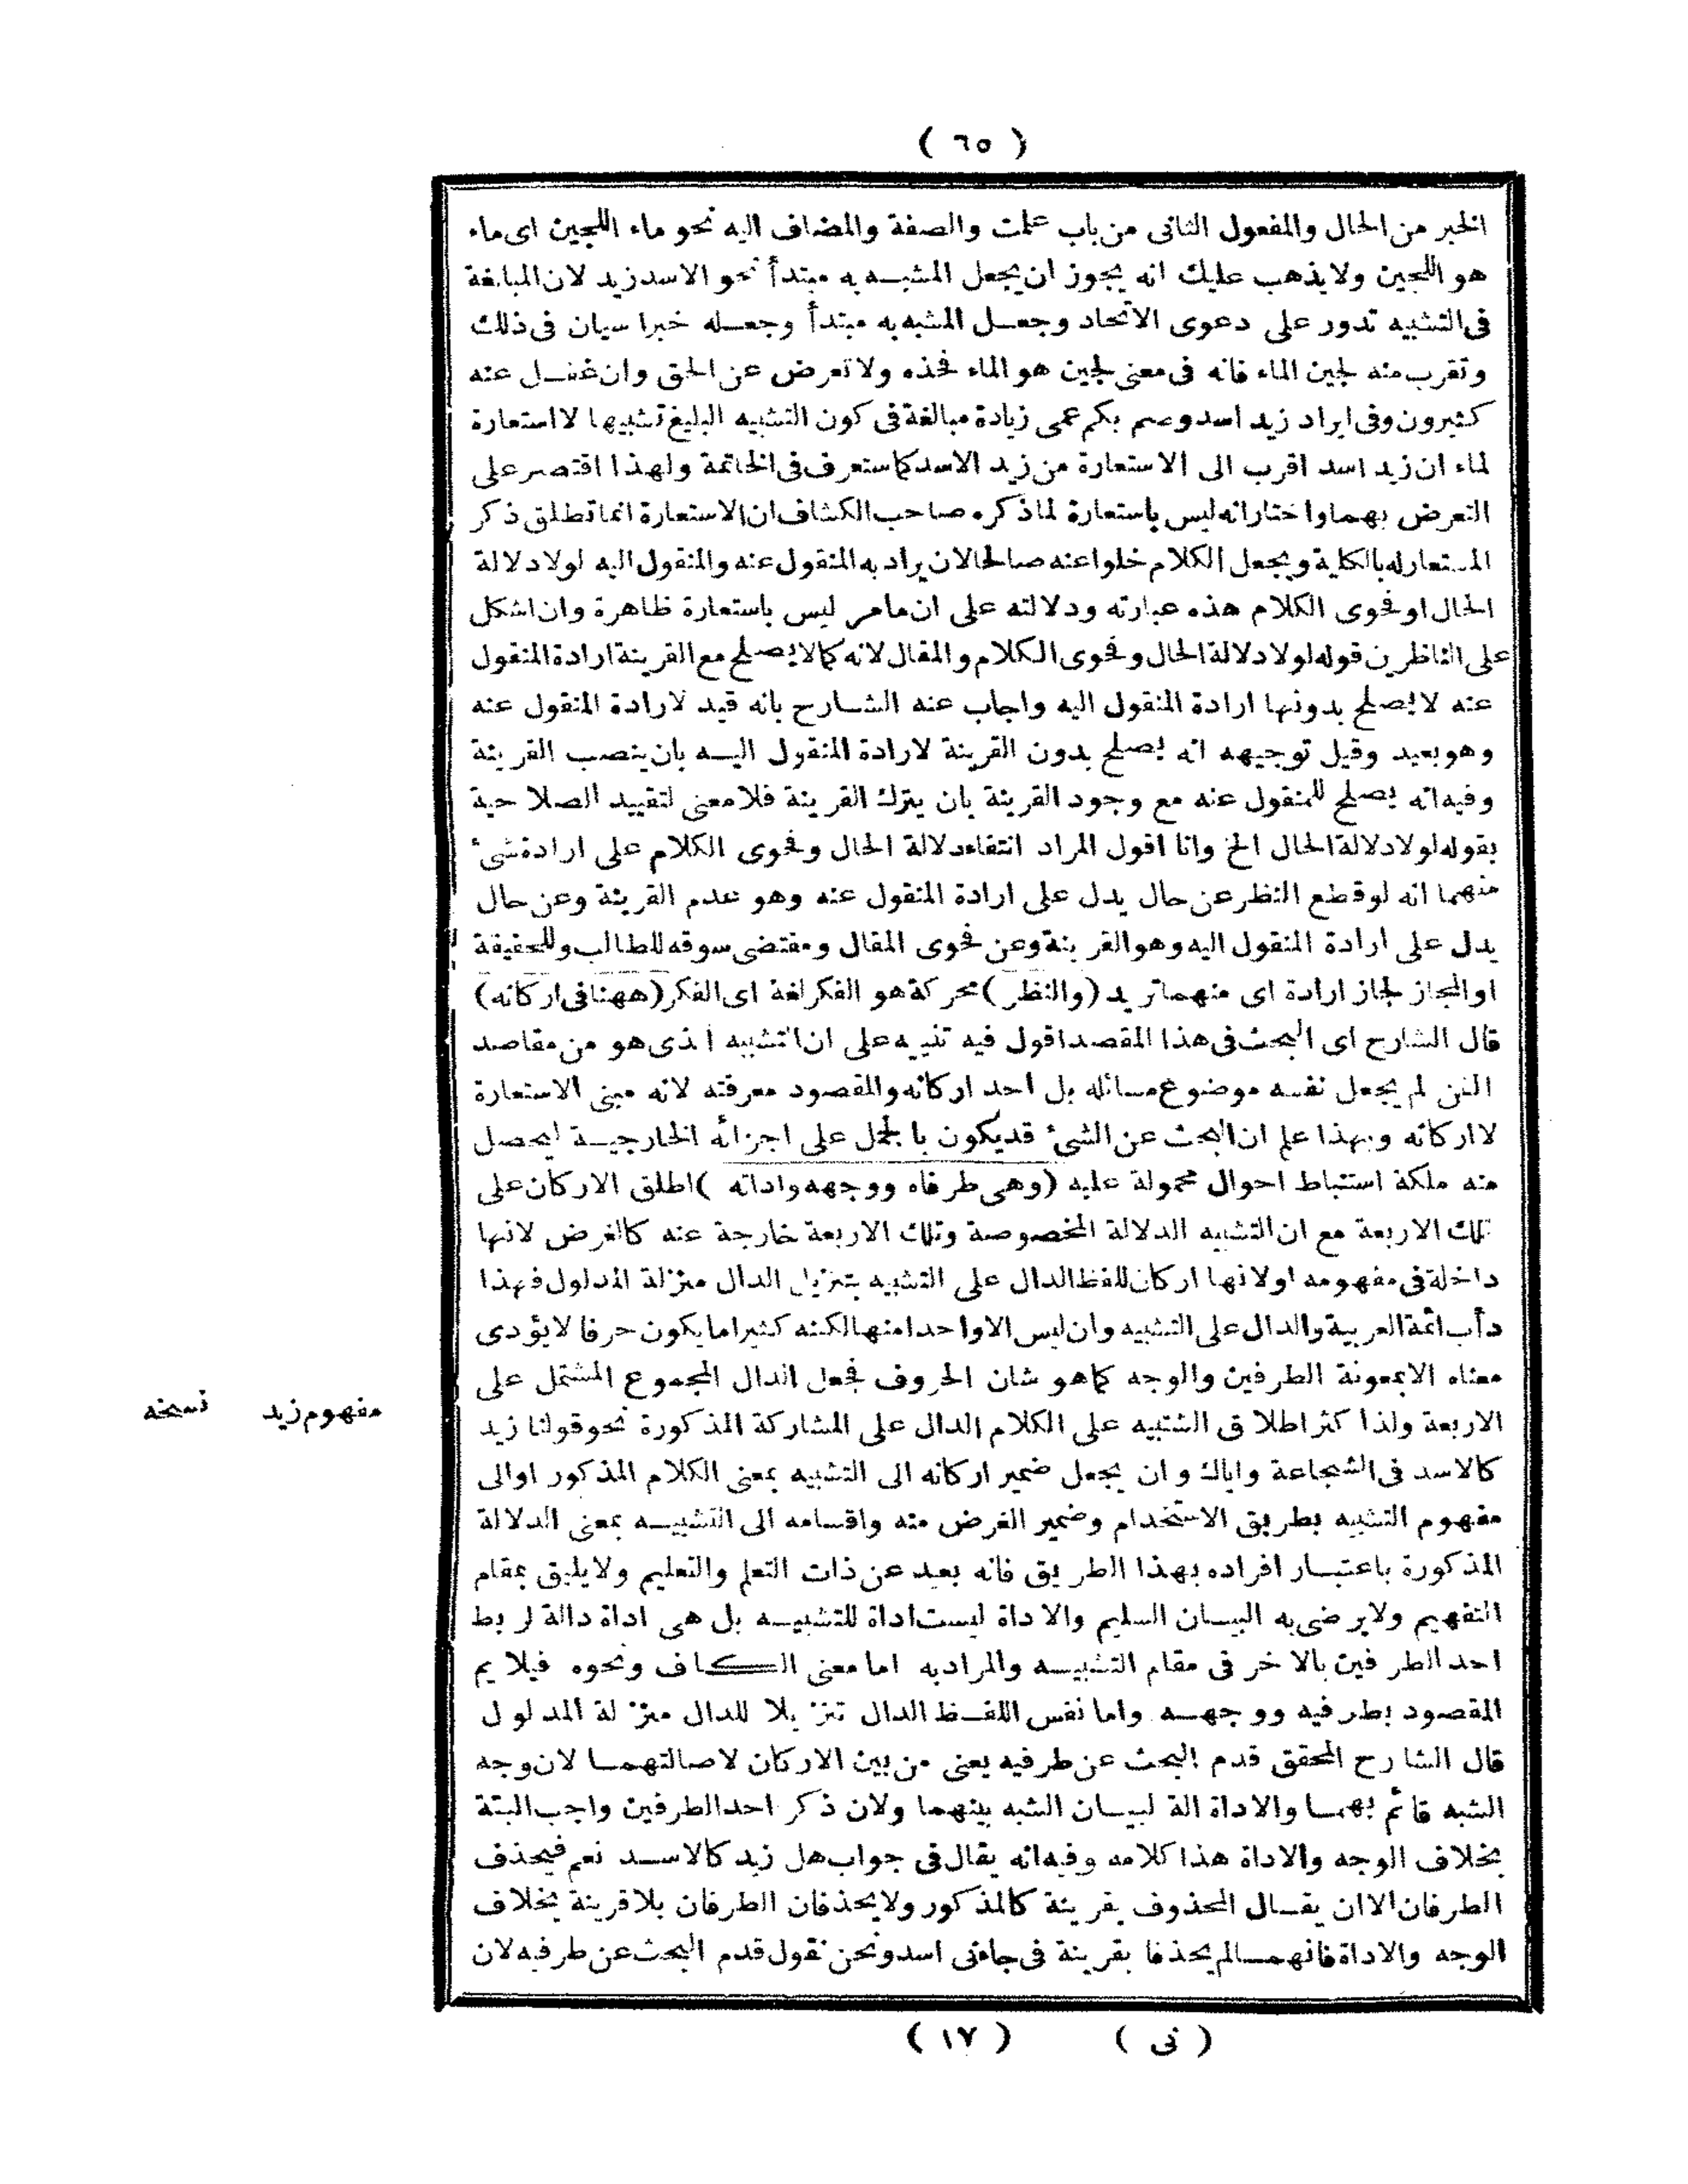 ( ٦٥ )
الخبر من الحال والمفعول الثانى من باب علمت والصفة والمضاف اليه نحو ماء اللجين اى ماء
هو اللجين ولا يذهب عليك انه يجوز ان يجعل المشبه به مبتدأ نحو الاسد زيد لان المبالغة
فى التشبيه تدور على دعوى الاتحاد وجعل المشبه به مبتدأ وجعله خبرا سيان فى ذلك
وتقرب منه لجين الماء فانه فى معنى لجين هو الماء فخذه ولا تعرض عن الحق وان غفل عنه
كثيرون وفى ايراد زيد اسد وصم بكم عمى زيادة مبالغة فى كون التشبيه البليغ تشبيها لا استعارة
لماء ان زيد اسد اقرب الى الاستعارة من زيد الاسد كما ستعرف فى الخاتمة ولهذا اقتصر على
التعرض بهما واختار انه ليس باستعارة لما ذكره صاحب الكشاف ان الاستعارة انما تطلق ذكر
المستعار له بالكلية ويجعل الكلام خلوا عنه صالحا لان يراد به المنقول عنه والمنقول اليه لولا دلالة
الحال او فحوى الكلام هذه عبارته ودلالته على ان مامر ليس باستعارة ظاهرة وان اشكل
على الناظرين قوله لولا دلالة الحال وفحوى الكلام والمقال لانه كما لا يصلح مع القرينة ارادة المنقول
عنه لا يصلح بدونها ارادة المنقول اليه واجاب عنه الشارح بانه قيد لارادة المنقول عنه
وهو بعيد وقيل توجيهه انه يصلح بدون القرينة لارادة المنقول اليه بان ينصب القرينة
وفيه انه يصلح للمنقول عنه مع وجود القرينة بان يترك القرينة فلا معنى لتقييد الصلاحية
بقوله لولا دلالة الحال الخ وانا اقول المراد انتفاء دلالة الحال وفحوى الكلام على ارادة شئ
منهما انه لو قطع النظر عن حال يدل على ارادة المنقول عنه وهو عدم القرينة وعن حال
يدل على ارادة المنقول اليه وهو القرينة وعن فحوى المقال ومقتضى سوقه للطالب وللحقيقة
او المجاز لجاز ارادة اى منهما تريد (والنظر) محركة هو الفكر لغة اى الفكر (ههنا فى اركانه)
قال الشارح اى البحث فى هذا المقصد اقول فيه تنبيه على ان التشبيه الذى هو من مقاصد
الفن لم يجعل نفسه موضوع مسائله بل احد اركانه والمقصود معرفته لانه مبنى الاستعارة
لا اركانه وبهذا علم ان البحث عن الشئ قد يكون بالحمل على اجزائه الخارجية ليحصل
منه ملكة استنباط احوال محمولة عليه (وهى طرفاه ووجهه واداته) اطلق الاركان على
تلك الاربعة مع ان التشبيه الدلالة المخصوصة وتلك الاربعة خارجة عنه كالغرض لانها
داخلة فى مفهومه او لانها اركان للفظ الدال على التشبيه بتنزيل الدال منزلة المدلول فهذا
دأب ائمة العربية والدال على التشبيه وان ليس الا واحدا منها لكنه كثيرا ما يكون حرفا لا يؤدى
معناه الا بمعونة الطرفين والوجه كما هو شان الحروف فجعل الدال المجموع المشتمل على
الاربعة ولذا كثر اطلاق التشبيه على الكلام الدال على المشاركة المذكورة نحو قولنا زيد
كالاسد فى الشجاعة واياك وان يجعل ضمير اركانه الى التشبيه بمعنى الكلام المذكور او الى
مفهوم التشبيه بطريق الاستخدام وضمير الغرض منه واقسامه الى التشبيه بمعنى الدلالة
المذكورة باعتبار افراده بهذا الطريق فانه بعيد عن ذات التعلم والتعليم ولا يليق بمقام
التفهيم ولا يرضى به البيان السليم والاداة ليست اداة للتشبيه بل هى اداة دالة لربط
احد الطرفين بالاخر فى مقام التشبيه والمراد به اما معنى الكاف ونحوه فيلايم
المقصود بطرفيه ووجهه واما نفس اللفظ الدال تنزيلا للدال منزلة المدلول
قال الشارح المحقق قدم البحث عن طرفيه يعنى من بين الاركان لاصالتهما لان وجه
الشبه قائم بهما والاداة الة لبيان الشبه بينهما ولان ذكر احد الطرفين واجب البتة
بخلاف الوجه والاداة هذا كلامه وفيه انه يقال فى جواب هل زيد كالاسد نعم فيحذف
الطرفان الا ان يقال المحذوف بقرينة كالمذكور ولا يحذفان الطرفان بلا قرينة بخلاف
الوجه والاداة فانهما لم يحذفا بقرينة فى جاءنى اسد ونحن نقول قدم البحث عن طرفيه لان
مفهوم زيد نسخه
( نى ) ( ١٧ )